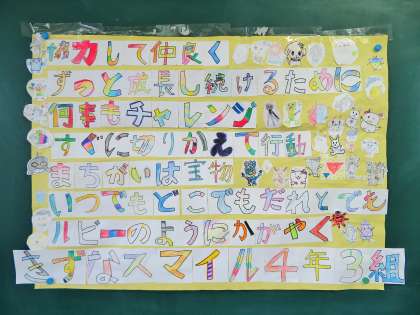 協力して仲良く
ずっと成長し続けるために
何事もチャレンジ
すぐに切りかえて行動
まちがいは宝物
いつでもどこでもだれとでも
ルビーのようにかがやく
きずなスマイル4年3組